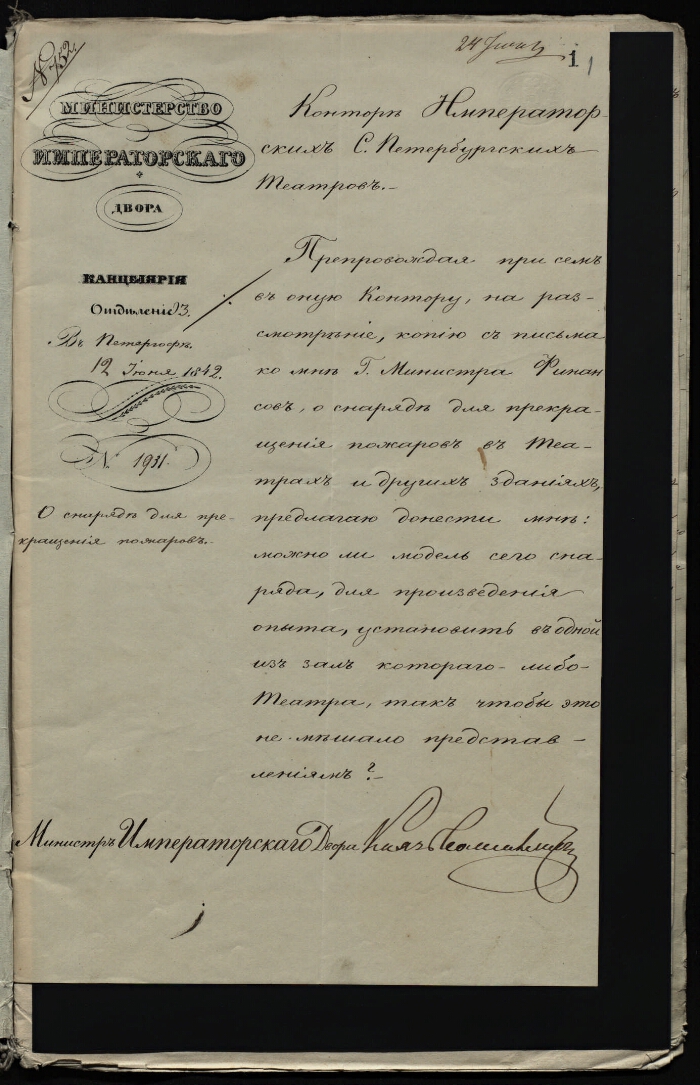 № 752
24 Іюня
1
1
МИНИСТЕРСТВО
ИМПЕРАТОРСКАГО
ДВОРА
КАНЦЕЛЯРІЯ
Отдѣленіе 3.
Въ Петергофѣ.
12 Іюня 1842.
№ 1931.
О снарядѣ для пре-
кращенія пожаровъ.
Конторѣ Император-
скихъ С. Петербургскихъ
Театровъ.-
Препровождая при семъ
въ оную Контору, на раз-
смотрѣніе, копію съ письма
ко мнѣ Г. Министра Финан
совъ, о снарядѣ для прекра-
щенія пожаровъ въ Теа-
трахъ и другихъ зданіяхъ,
предлагаю донести мнѣ:
можно ли модель сего сна-
ряда, для произведенія
опыта, установить въ одной
изъ залъ котораго-либо
Театра, такъ чтобы это
не мѣшало представ-
леніямъ?-
Министръ Императорскаго Двора Князь